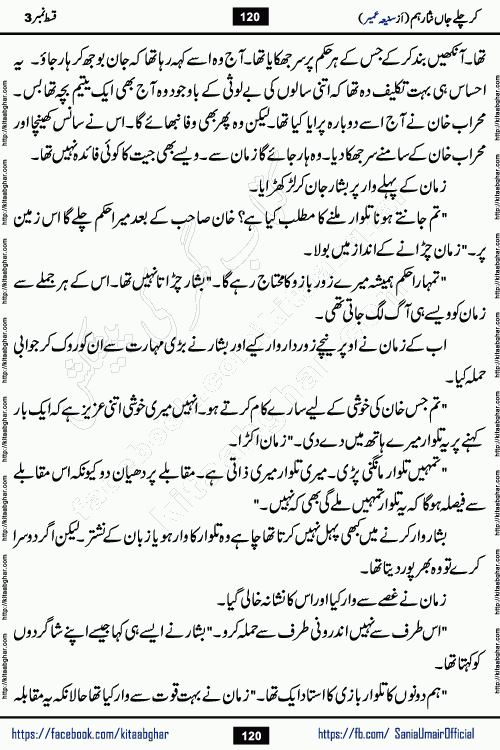 کر چلے جاں نثار ہم (از سنیعہ عمیر) 120 قسط نمبر 3
تھا۔ آنکھیں بند کر کے جس کے ہر حکم پر سر جھکایا تھا۔ آج وہ اسے کہہ رہا تھا کہ جان بوجھ کر ہار جاؤ۔ یہ
احساس ہی بہت تکلیف دہ تھا کہ اتنی سالوں کی بے لوثی کے باوجود وہ آج بھی ایک یتیم بچہ تھا بس۔
محراب خان نے آج اسے دوبارہ پرایا کیا تھا۔ لیکن وہ پھر بھی وفا نبھائے گا۔ اس نے سانس کھینچا اور
محراب خان کے سامنے سر جھکا دیا۔ وہ ہار جائے گا زمان سے۔ ویسے بھی جیت کا کوئی فائدہ نہیں تھا۔
زمان کے پہلے وار پر بشار جان کر لڑکھڑایا۔
"تم جانتے ہو نا تلوار ملنے کا مطلب کیا ہے؟ خان صاحب کے بعد میرا حکم چلے گا اس زمین
پر۔" زمان چڑانے کے انداز میں بولا۔
"تمہارا حکم ہمیشہ میرے زور بازو کا محتاج رہے گا۔" بشار چڑاتا نہیں تھا۔ اس کے ہر جملے سے
زمان کو ویسے ہی آگ لگ جاتی تھی۔
اب کے زمان نے اوپر نیچے زور دار وار کیے اور بشار نے بڑی مہارت سے ان کو روک کر جوابی
حملہ کیا۔
"تم جس خان کی خوشی کے لیے سارے کام کرتے ہو۔ انہیں میری خوشی اتنی عزیز ہے کہ ایک بار
کہنے پر یہ تلوار میرے ہاتھ میں دے دی۔" زمان اکڑا۔
"تمہیں تلوار مانگنی پڑی۔ میری تلوار میری ذاتی ہے۔ مقابلے پر دھیان دو کیونکہ اس مقابلے
سے فیصلہ ہو گا کہ یہ تلوار تمہیں ملے گی بھی کہ نہیں۔"
بشار وار کرنے میں کبھی پہل نہیں کرتا تھا چاہے وہ تلوار کا وار ہو یا زبان کے نشتر۔ لیکن اگر دوسرا
کرے تو وہ بھرپور دیتا تھا۔
زمان نے غصے سے وار کیا اور اس کا نشانہ خالی گیا۔
"اس طرف سے نہیں اندرونی طرف سے حملہ کرو۔" بشار نے ایسے ہی کہا جیسے اپنے شاگردوں
کو کہتا تھا۔
"ہم دونوں کا تلوار بازی کا استاد ایک تھا۔" زمان نے بہت قوت سے وار کیا تھا حالانکہ یہ مقابلہ
https://facebook.com/kitaabghar 120 https://fb.com/ SaniaUmairOfficial
http://kitaabghar.com